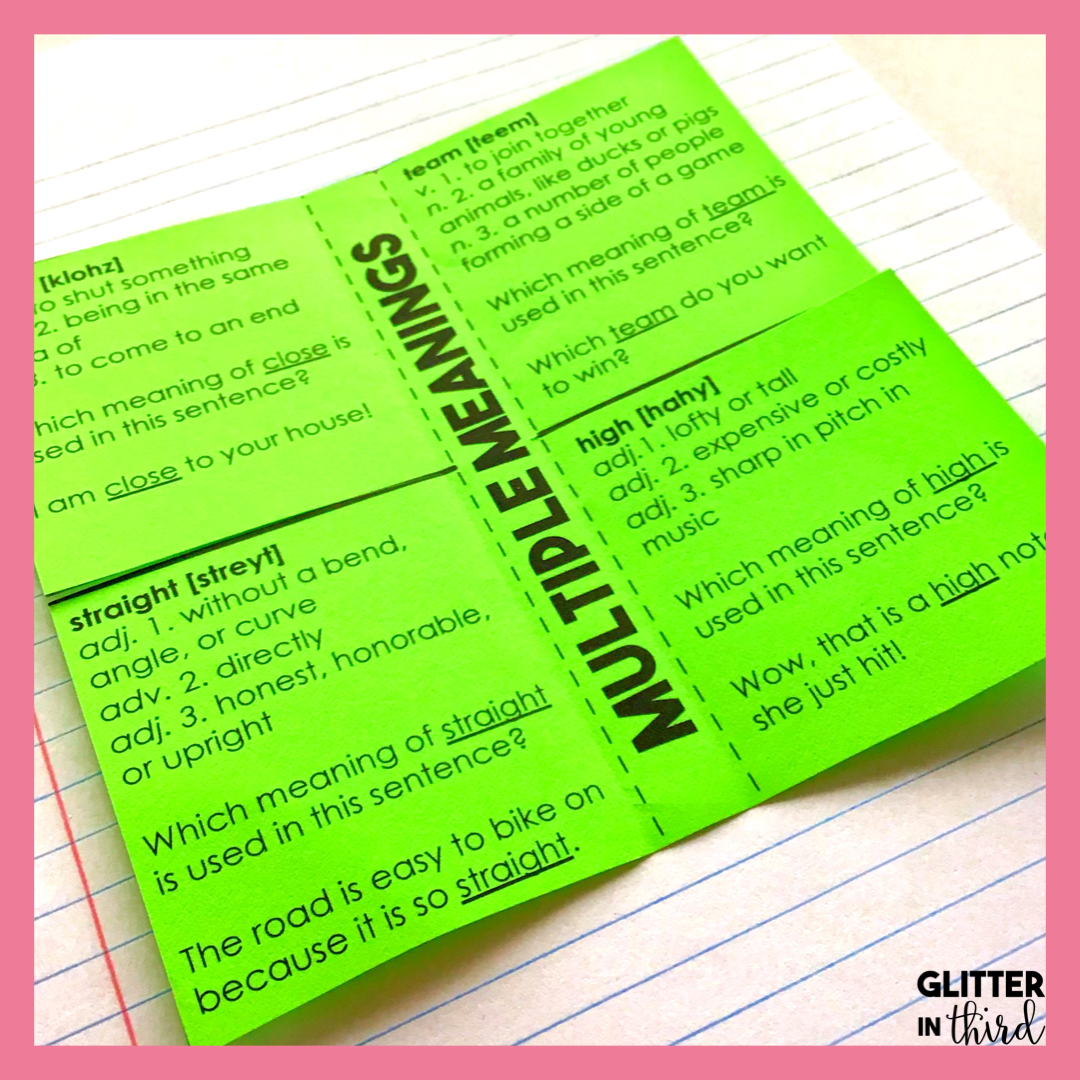 [klohz]
to shut something
2. being in the same
a of
3. to come to an end
hich meaning of close is
sed in this sentence?
I am close to your house!
straight [streyt]
adj. 1. without a bend,
angle, or curve
adv. 2. directly
adj. 3. honest, honorable,
or upright
Which meaning of straight
is used in this sentence?
The road is easy to bike on
because it is so straight.
MULTIPLE MEANINGS
team [teem]
v. 1. to join together
n. 2. a family of young
animals, like ducks or pigs
n. 3. a number of people
forming a side of a game
Which meaning of team is
used in this sentence?
Which team do you want
to win?
high [hahy]
adj. 1. lofty or tall
adj. 2. expensive or costly
adj. 3. sharp in pitch in
music
Which meaning of high is
used in this sentence?
Wow, that is a high note
she just hit!
GLITTER
IN third